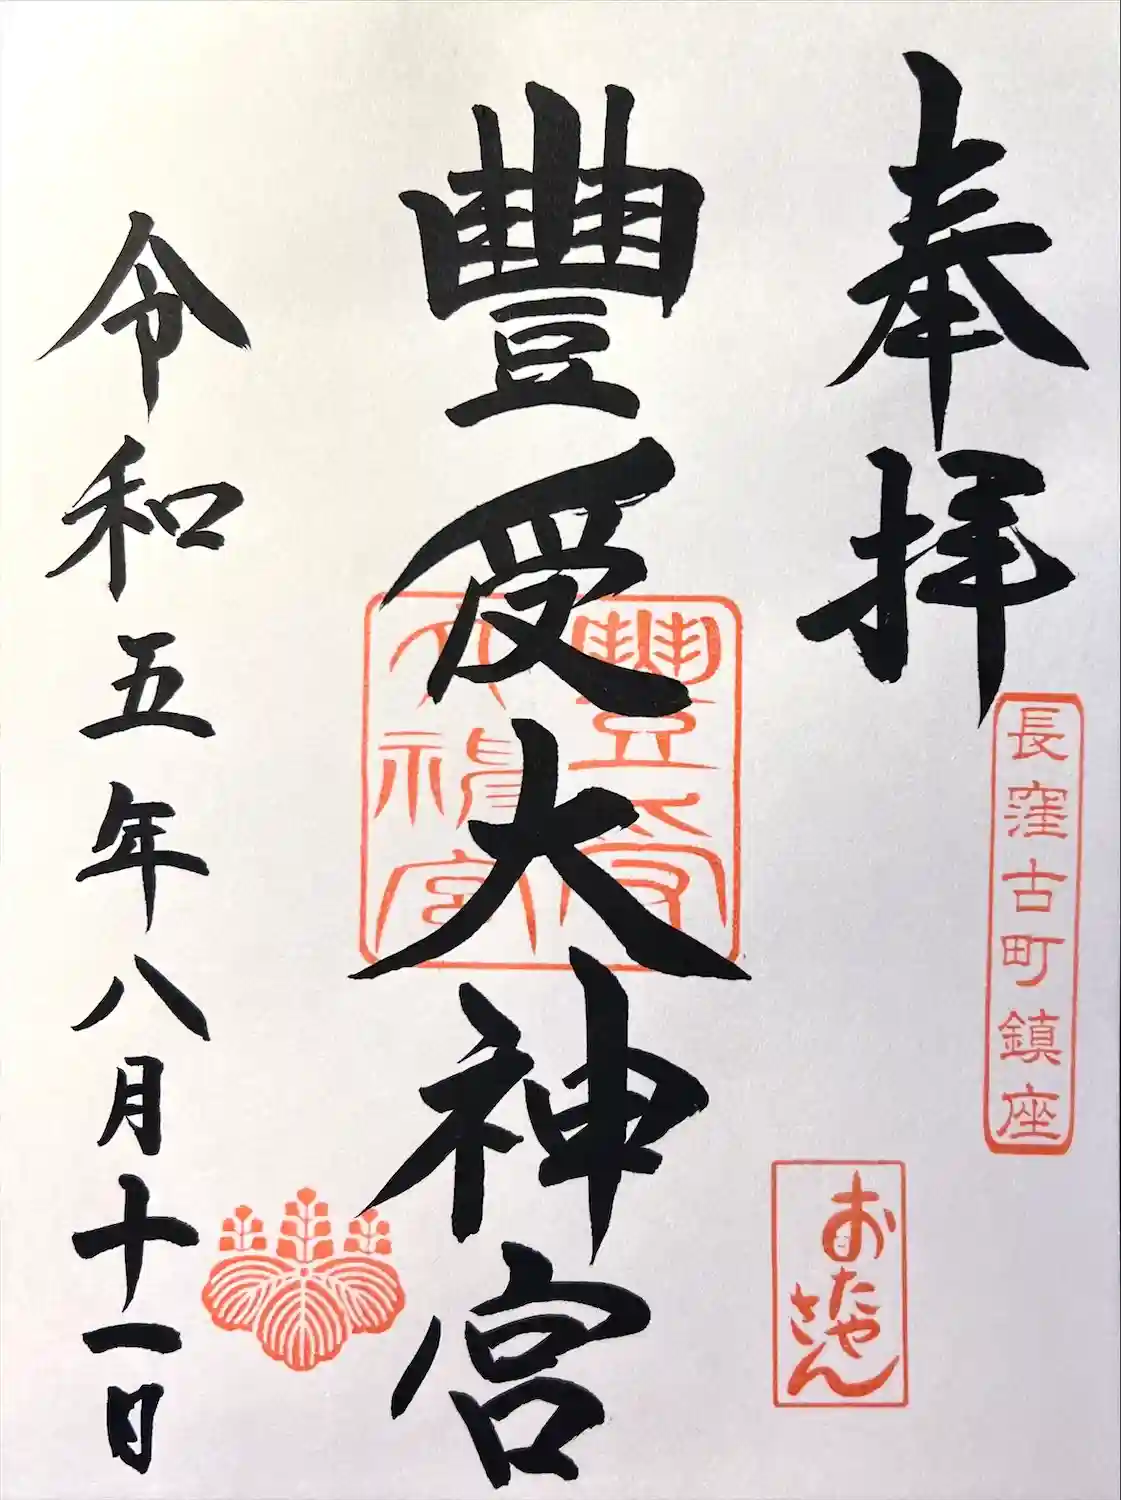 奉拝
長窪古町鎮座
おたや
さん
豐受大神宮
豐受
大神宮
令和五年八月十一日